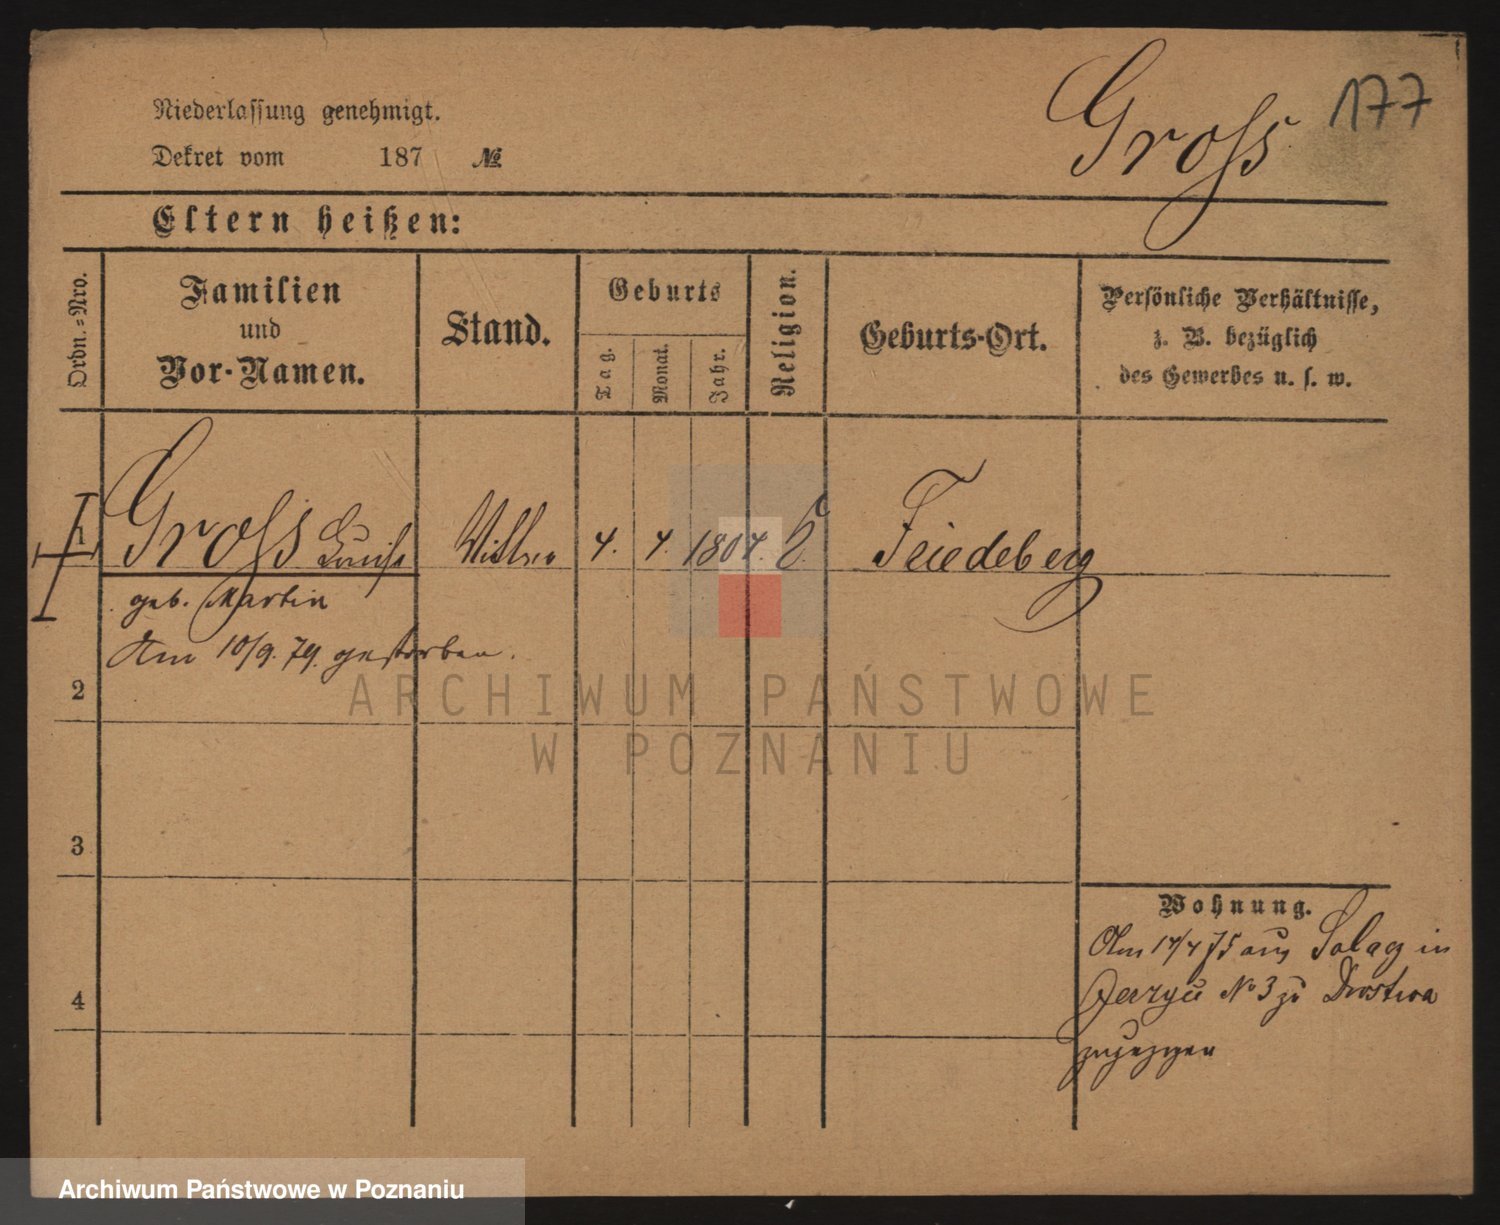 Niederlassung genehmigt.
Dekret vom 187 №
Gross
177
Eltern heißen:
Ordn.=Nro.
Familien
und
Vor-Namen.
Stand.
Geburts
Tag.
Monat.
Jahr.
Religion.
Geburts-Ort.
Persönliche Verhältnisse,
z. B. bezüglich
des Gewerbes u. s. w.
1 Gross Louise Wittwe 4. 4. 1804. E. Friedeberg
geb. Martin
Am 10/9. 79. gestorben.
2
3
4
Wohnung.
Am 17/4 75 aus Solacz in
Jerzyce № 3 zu
zugezogen
ARCHIWUM PAŃSTWOWE
W POZNANIU
Archiwum Państwowe w Poznaniu